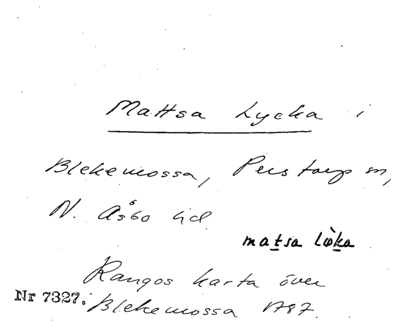 Mattsa Lycka i
Blekemossa, Perstorp sn,
N. Åsbo hd.
matsa lø̀ka
Rangos karta över
Nr 7327. Blekemossa 1787.